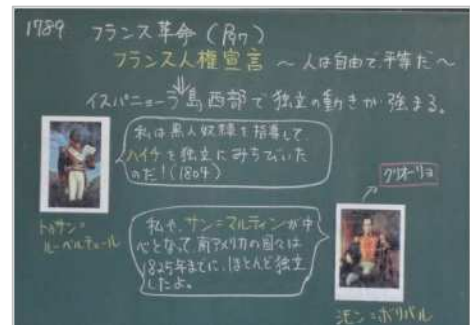 1789 フランス革命(勃)
フランス人権宣言 ～人は自由で、平等だ～
イスパニョーラ島西部で独立の動きが強まる。
私は黒人奴隷を指導して、
ハイチを独立にみちびいた
のだ!(1804)
トゥサン=
ルーベルチュール
クリオーリョ
私や、サン=マルティンが中
心となって、南アメリカの国々は
1825年までに、ほとんど独立
したよ。
シモン=ボリバル